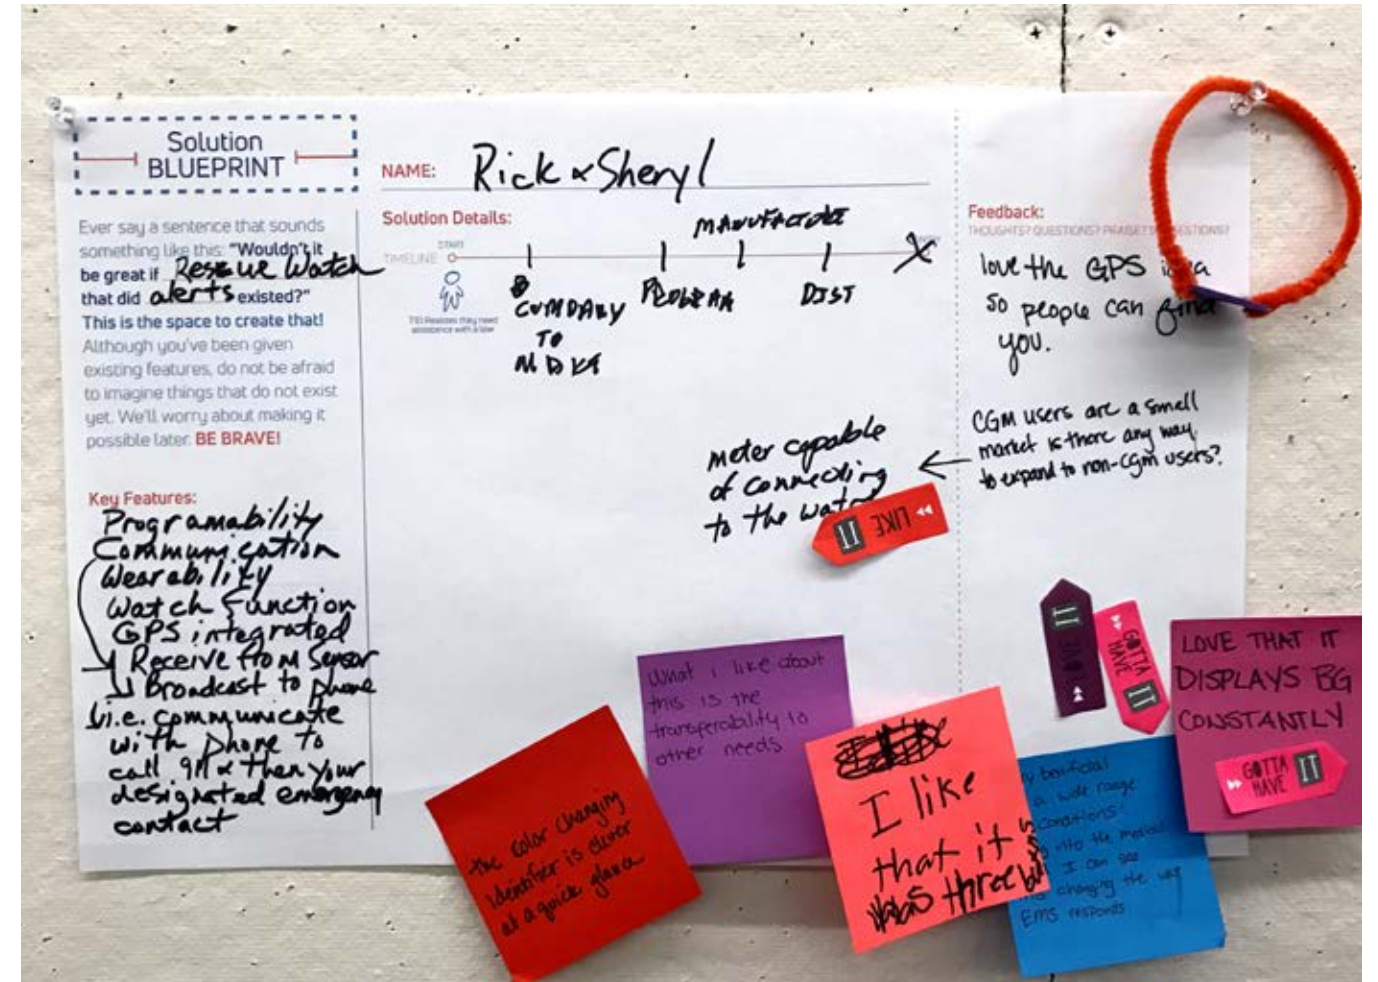 Solution
BLUEPRINT
Ever say a sentence that sounds
something like this: "Wouldn't it
be great if Rescue Watch
that did alerts existed?"
This is the space to create that!
Although you've been given
existing features, do not be afraid
to imagine things that do not exist
yet. We'll worry about making it
possible later. BE BRAVE!
Key Features:
Programability
Communication
Wearability
Watch Function
GPS integrated
Receive from Sensor
Broadcast to phone
i.e. communicate
with phone to
call 911 & then your
designated emergency
contact
NAME: Rick & Sheryl
Solution Details:
START
TIMELINE
MANUFACTURE
COMPANY
TO
DIST
assistance with a low
meter capable
of connecting
to the
LIKE IT
Feedback:
THOUGHTS? QUESTIONS? PRAISE?
love the GPS
so people can find
you.
CGM users are a small
market is there any way
to expand to non-CGM users?
LOVE IT
GOTTA HAVE IT
LOVE THAT IT
DISPLAYS BG
CONSTANTLY
GOTTA HAVE IT
What i like about
this is the
transperability to
other needs
the color changing
identifier is clever
at a quick glance
I like
that it
three
benificial
a wide range
conditions!
into the medical
I can see
changing the way
EMS responds